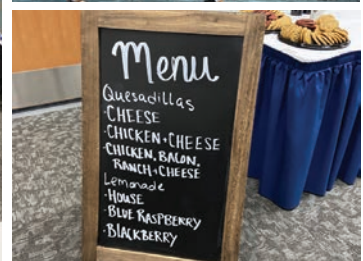 Menu
Quesadillas
·CHEESE
·CHICKEN+CHEESE
·CHICKEN, BACON,
RANCH+CHEESE
Lemonade
·HOUSE
·BLUE RASPBERRY
·BLACKBERRY